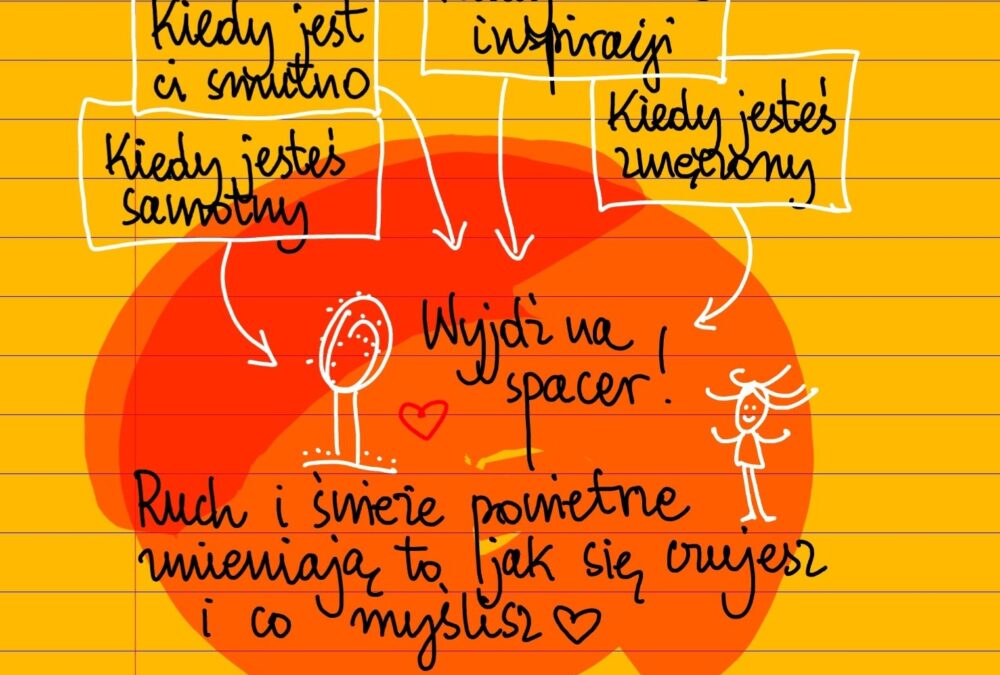 Kiedy jest
ci smutno
inspiracji
Kiedy jesteś
samotny
Kiedy jesteś
zmęczony
Wyjdź na
spacer!
Ruch i świeże powietrze
zmieniają to, jak się czujesz
i co myślisz